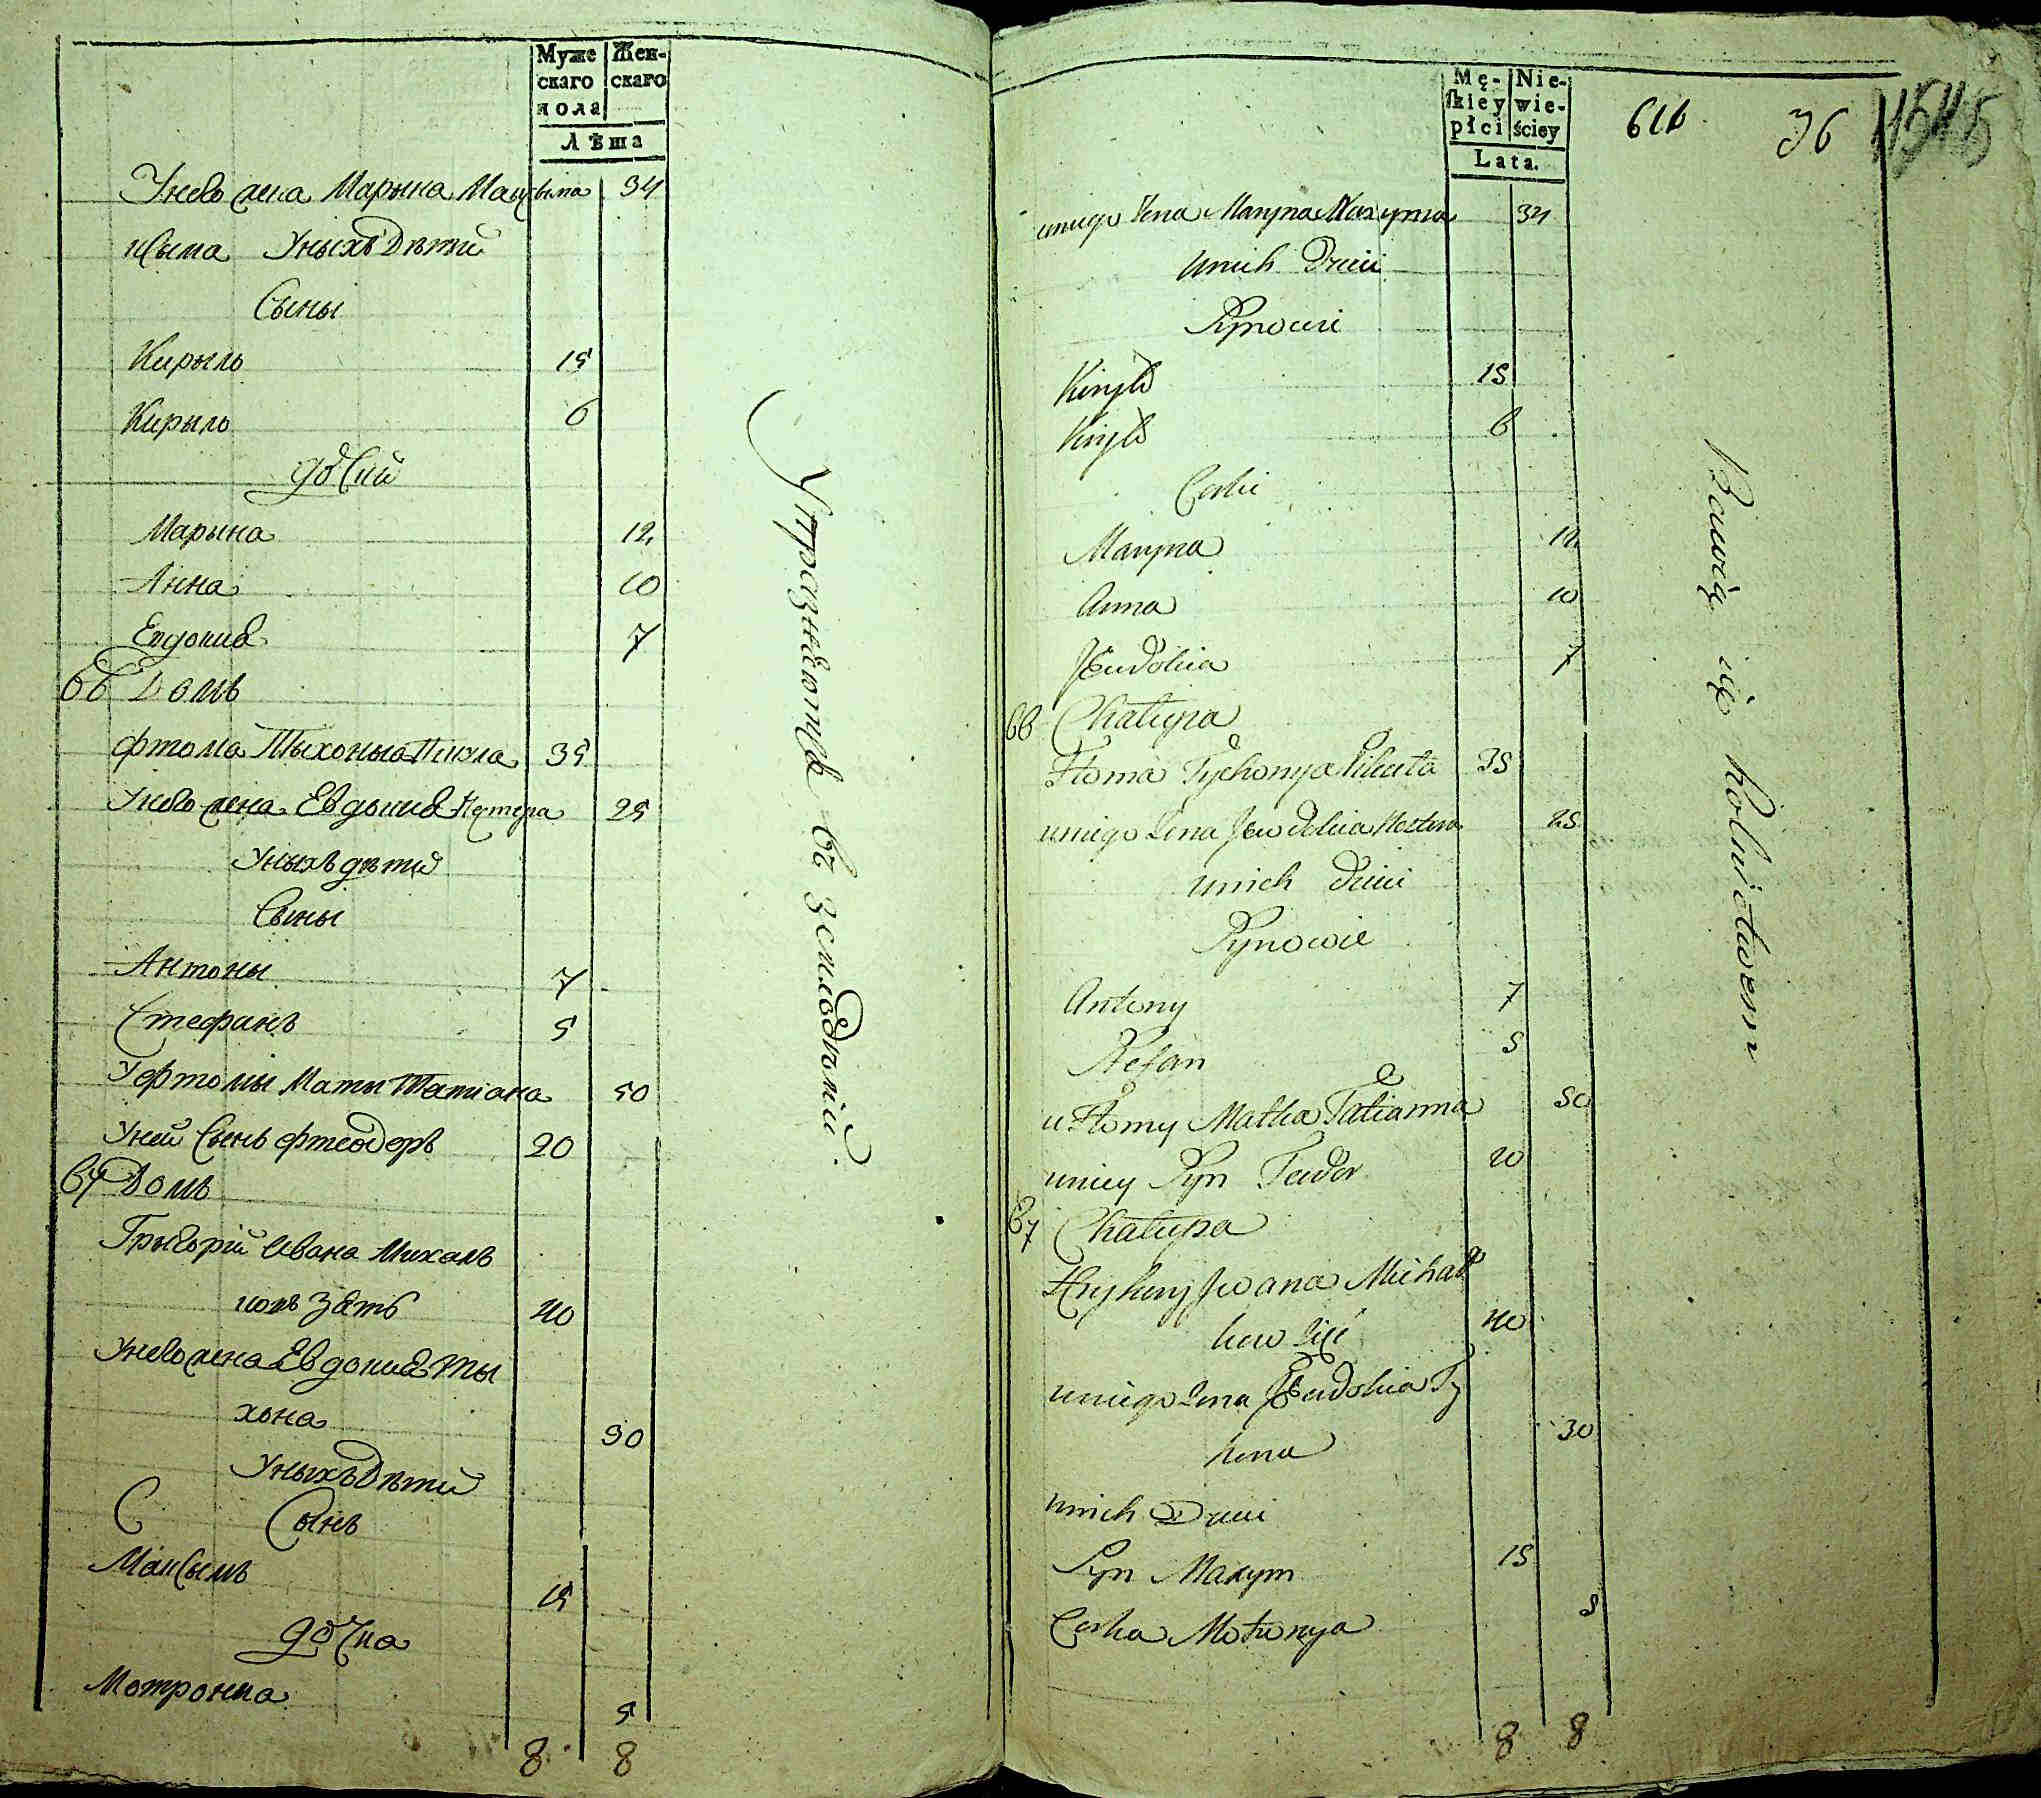 Муже Жен-
скаго скаго
пола
Лѣта
У него жена Марына Мац 34
сыма У ныхъ Дѣти
Сыны
Кирыло 15
Кирыло 6
дочки
Марына 12
Анна 10
Евдокиа 7
66 Домъ
Фтома Тыхоныа 35
У него жена Евдокиа Нестера 25
У ныхъ дѣти
Сыны
Антоны 7
Стефанъ 5
У Фтомы Маты Татiана 50
У ней Сынъ Фтеодоръ 20
67 Домъ
Грыгорiй Ивана Михаль
ковъ Зять 40
У него жена Евдокиа Ты
хона 30
У ныхъ Дѣти
Сынъ
Максымъ 15
дочка
Мотрона 5
8 8
Упражнѣются въ Земледѣлiи
Mę- Nie-
skiey wie-
płci ściey
Lata.
616 36
u niego Żena Maryna Maxyma 34
u nich Dzieci
Synowie
Kiryło 15
Kiryło 6
Corki
Maryna 12
Anna 10
Jeudokia 7
66 Chałupa
Ftoma Tychonya 35
u niego Żena Jewdokia Nestera 25
u nich dzieci
Synowie
Antony 7
Stefan 5
u Ftomy Matka Tatianna 50
u niey Syn Teodor 20
67 Chałupa
Hryhory Jwana Michal
kow Zięć 40
u niego Żena Jeudokia Ty
hona 30
u nich Dzieci
Syn Maxym 15
Corka Motronya 5
8 8
Bawią się Rolnictwem